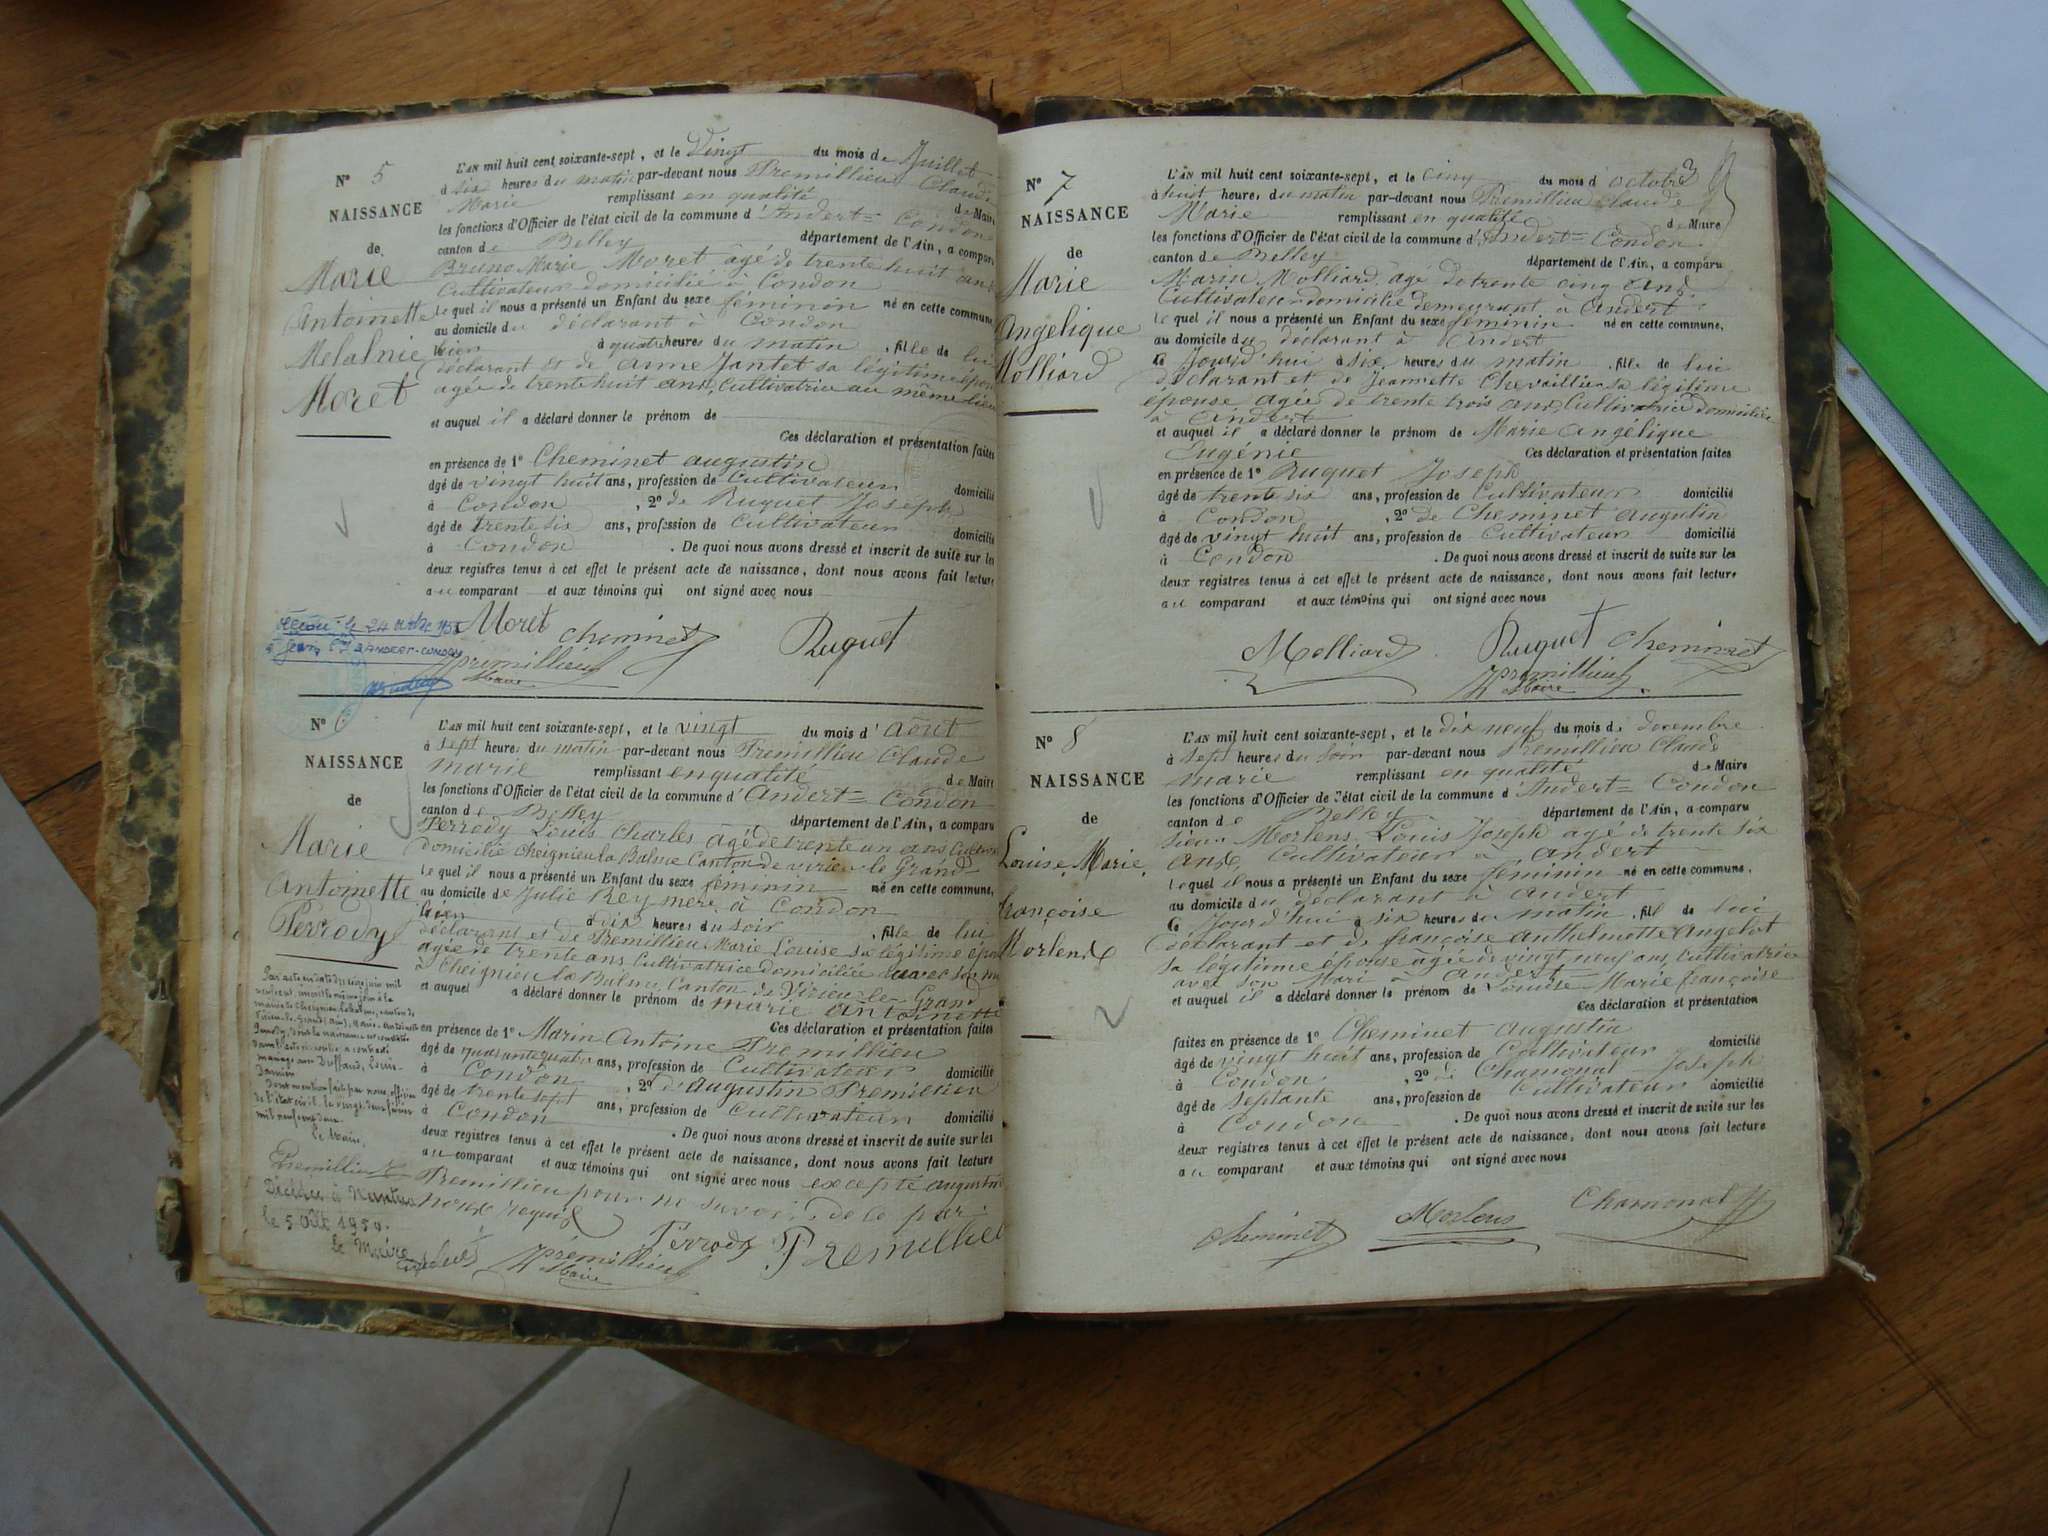 Nº 5
NAISSANCE
de
Marie
Antoinette
Melalnie
Moret
L'AN mil huit cent soixante-sept, et le Vingt du mois de Juillet
à six heures du matin par-devant nous Premillieu Claude
Marie remplissant en qualité de Maire
les fonctions d'Officier de l'état civil de la commune d'Andert=Condon
canton de Belley département de l'Ain, a comparu
Bruno Marie Moret âgé de trente huit ans
Cultivateur domicilié à Condon
le quel il nous a présenté un Enfant du sexe féminin né en cette commune,
au domicile du déclarant à Condon
à quatre heures du matin, fille de lui
déclarant et de anne Jantet sa légitime épouse
agée de trente huit ans, Cultivatrice au même lieu
et auquel il a déclaré donner le prénom de
Ces déclaration et présentation faites
en présence de 1º Cheminet augustin
âgé de vingt huit ans, profession de Cultivateur domicilié
à Condon, 2º de Ruquet Joseph
âgé de trente six ans, profession de Cultivateur domicilié
à Condon. De quoi nous avons dressé et inscrit de suite sur les
deux registres tenus à cet effet le présent acte de naissance, dont nous avons fait lecture
au comparant et aux témoins qui ont signé avec nous
Moret cheminet Ruquet
Premillieu
Maire
le 24
ANDERT-CONDON
Nº 6
NAISSANCE
de
Marie
Antoinette
Perrody
L'AN mil huit cent soixante-sept, et le vingt du mois d'Août
à sept heures du matin par-devant nous Premillieu Claude
marie remplissant en qualité de Maire
les fonctions d'Officier de l'état civil de la commune d'Andert=Condon
canton de Belley département de l'Ain, a comparu
Perrody Louis Charles âgé de trente un ans
domicilié Cheignieu la Balme Canton de virieu le Grand
le quel il nous a présenté un Enfant du sexe féminin né en cette commune,
au domicile de Julie Rey mere à Condon
hier à dix heures du soir, fille de lui
déclarant et de Premillieu Marie Louise sa légitime
agée de trente ans Cultivatrice domiciliée avec son
à Cheignieu la Balme Canton de Virieu-le-Grand
et auquel a déclaré donner le prénom de marie antoinette
Ces déclaration et présentation faites
en présence de 1º Marin Antoine Premillieu
âgé de quarante quatre ans, profession de Cultivateur domicilié
à Condon, 2º d'augustin Premillieu
âgé de trente sept ans, profession de Cultivateur domicilié
à Condon. De quoi nous avons dressé et inscrit de suite sur les
deux registres tenus à cet effet le présent acte de naissance, dont nous avons fait lecture
au comparant et aux témoins qui ont signé avec nous excepté augustin
Premillieu pour ne savoir de ce par
nous requis
Perrody Premillieu
Premillieu
Maire
mariage avec Duffaud, Louis
Damien
Dont mention faite par nous, officier
de l'état civil, le vingt deux
mil neuf cent
Le Maire,
Premillieu
Décédée à
le 5 1950.
le Maire
Nº 7
NAISSANCE
de
Marie
Angelique
Molliard
3
L'AN mil huit cent soixante-sept, et le cinq du mois d'octobre
à huit heures du matin par-devant nous Premillieu Claude
Marie remplissant en qualité de Maire
les fonctions d'Officier de l'état civil de la commune d'Andert=Condon
canton de Belley département de l'Ain, a comparu
Marin Molliard agé de trente cinq ans
Cultivateur domicilié demeurant à Andert
le quel il nous a présenté un Enfant du sexe féminin né en cette commune,
au domicile du déclarant à Andert
ce jourd'hui à six heures du matin, fille de lui
déclarant et de Jeannette Chevaillier sa légitime
épouse agée de trente trois ans, Cultivatrice domiciliée
à Andert
et auquel il a déclaré donner le prénom de Marie Angélique
Eugénie Ces déclaration et présentation faites
en présence de 1º Ruquet Joseph
âgé de trente six ans, profession de Cultivateur domicilié
à Condon, 2º de Cheminet augustin
âgé de vingt huit ans, profession de Cultivateur domicilié
à Condon. De quoi nous avons dressé et inscrit de suite sur les
deux registres tenus à cet effet le présent acte de naissance, dont nous avons fait lecture
au comparant et aux témoins qui ont signé avec nous
Molliard Ruquet cheminet
Premillieu
Maire
Nº 8
NAISSANCE
de
Louise, Marie,
françoise
Morlens
L'AN mil huit cent soixante-sept, et le dix neuf du mois de decembre
à sept heures du soir par-devant nous Premillieu Claude
marie remplissant en qualité de Maire
les fonctions d'Officier de l'état civil de la commune d'Andert=Condon
canton de Belley département de l'Ain, a comparu
sieur Morlens, Louis Joseph agé de trente six
ans, Cultivateur à andert
lequel il nous a présenté un Enfant du sexe féminin né en cette commune,
au domicile du déclarant à andert
ce jourd'hui à six heures du matin, fill de lui
déclarant et de françoise anthelmette angelot
sa légitime épouse agée de vingt neuf ans, Cultivatrice
avec son Mari à andert
et auquel il a déclaré donner le prénom de Louise Marie françoise
Ces déclaration et présentation
faites en présence de 1º Cheminet augustin
âgé de vingt huit ans, profession de Cultivateur domicilié
à Condon, 2º de Chamonal Joseph
âgé de septante ans, profession de Cultivateur domicilié
à Condon. De quoi nous avons dressé et inscrit de suite sur les
deux registres tenus à cet effet le présent acte de naissance, dont nous avons fait lecture
au comparant et aux témoins qui ont signé avec nous
cheminet Morlens Chamonal